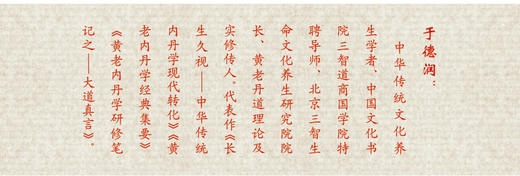 于德润：
中华传统文化养
生学者、中国文化书
院三智道商国学院特
聘导师、北京三智生
命文化养生研究院院
长、黄老丹道理论及
实修传人。代表作《长
生久视——中华传统
内丹学现代转化》《黄
老内丹学经典集要》
《黄老内丹学研修笔
记之——大道真言》。